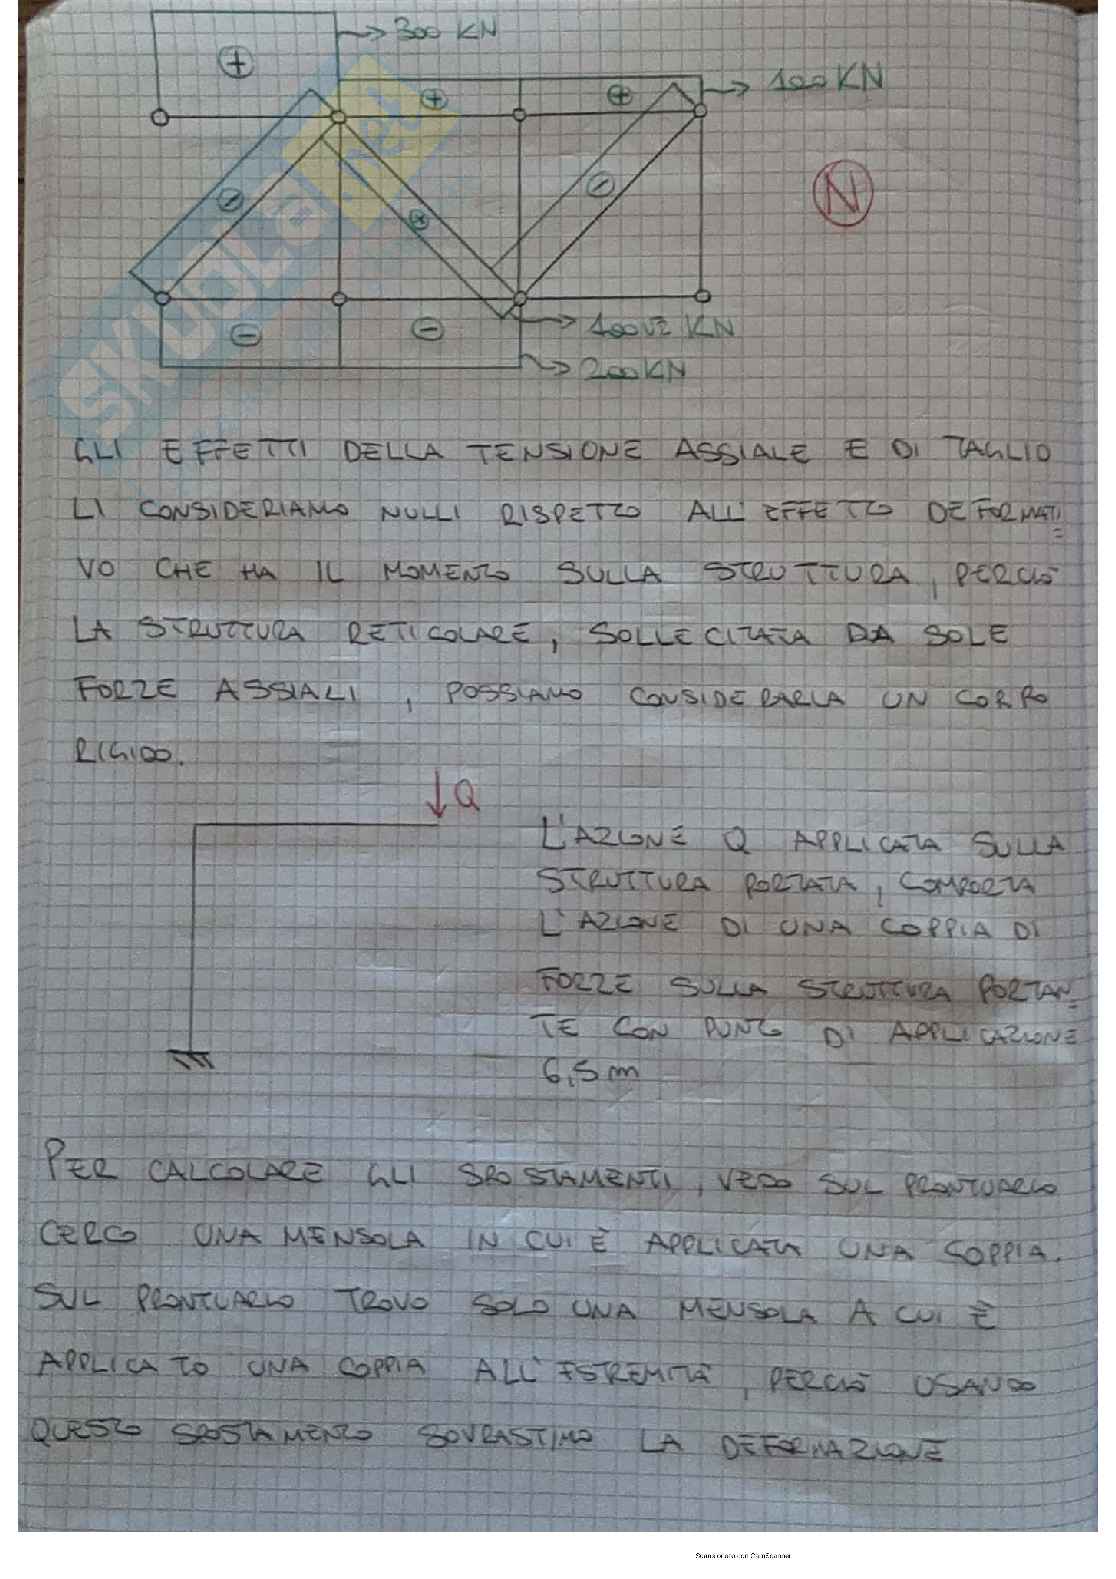 300 KN
+
100 KN
+
+
-
-
+
N
-
-
100√2 KN
200 KN
SKUOLA.net
GLI EFFETTI DELLA TENSIONE ASSIALE E DI TAGLIO
LI CONSIDERIAMO NULLI RISPETTO ALL'EFFETTO DEFORMATI
VO CHE HA IL MOMENTO SULLA STRUTTURA, PERCIÒ
LA STRUTTURA RETICOLARE, SOLLECITATA DA SOLE
FORZE ASSIALI, POSSIAMO CONSIDERARLA UN CORPO
RIGIDO.
Q
L'AZIONE Q APPLICATA SULLA
STRUTTURA PORTATA, COMPORTA
L'AZIONE DI UNA COPPIA DI
FORZE SULLA STRUTTURA PORTAN=
TE CON PUNTO DI APPLICAZIONE
6,5 m
PER CALCOLARE GLI SPOSTAMENTI, VEDO SUL PRONTUARIO
CERCO UNA MENSOLA IN CUI È APPLICATA UNA COPPIA.
SUL PRONTUARIO TROVO SOLO UNA MENSOLA A CUI È
APPLICATO UNA COPPIA ALL'ESTREMITÀ, PERCIÒ USANDO
QUESTO SPOSTAMENTO SOVRASTIMO LA DEFORMAZIONE
Scansionato con CamScanner